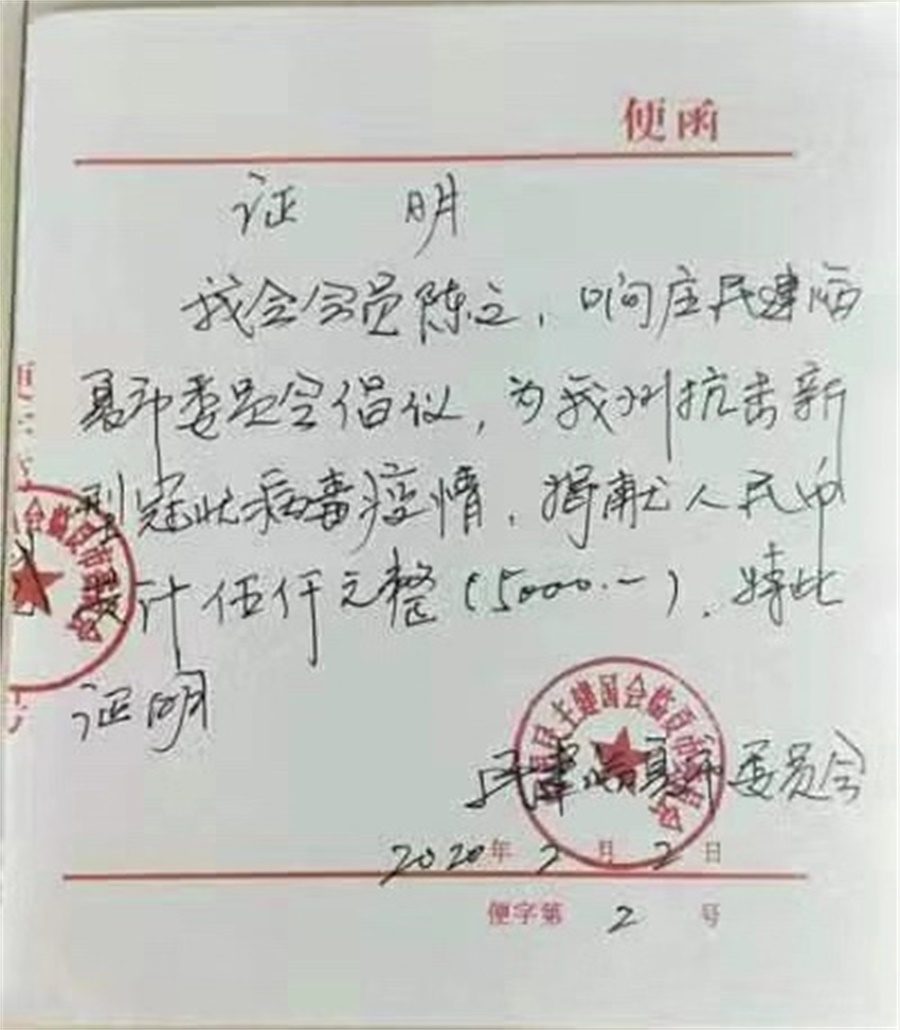 便函
证 明
我会会员陈立，响应民建临
夏市委员会倡议，为我州抗击新
型冠状病毒疫情，捐献人民币
共计伍仟元整（5000.—）．特此
证明
民建临夏市委员会
国民主建国会临夏市
2020年2月2日
便字第 2 号
会临夏市